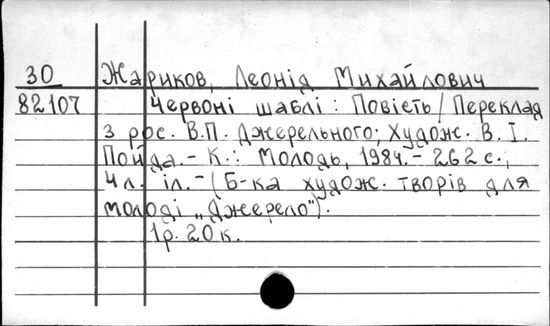 30 Жариков, Леонід Михайлович
82107 Червоні шаблі: Повість/Переклад
з рос. В.П. Джерельного; Худож. В.І.
Пойда.-К.: Молодь, 1984.-262 с.,
4 л. іл.-(Б-ка худож. творів для
молоді „Джерело").
1р. 20 к.